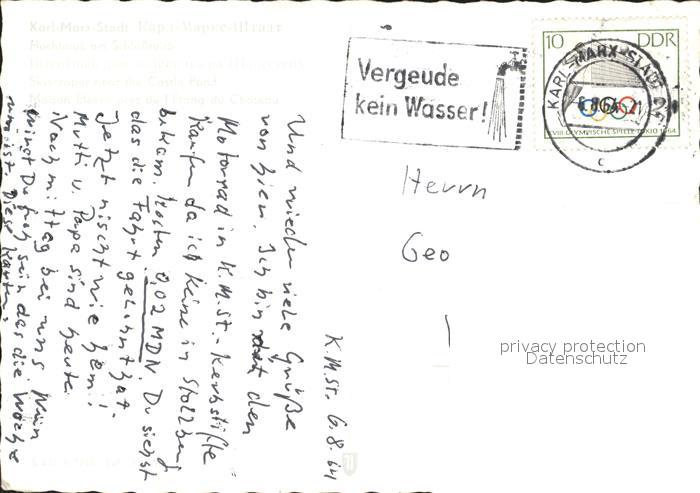 Karl-Marx-Stadt Карл-Маркс-Штадт
Hochhaus am Schloßteich
Skyscraper near the Castle Pond
Maison Elevée près de l'Etang du Château
Vergeude
kein Wasser!
KARL-MARX-STADT
10 DDR
XVIII. OLYMPISCHE SPIELE TOKIO 1964
c
Herrn
Geo
privacy protection
Datenschutz
K.M.St. 6.8.64
Und wieder viele Grüße
von hier. Ich bin mit den
Motorrad in K.M.St. - Kerbstifte
Kaufen da ich keine in Stollberg
bekam. Kosten 0,02 MDN. Du siehst
das die Fahrt gelohnt hat.
Jetzt nischt wie heim!
Mutti u. Papa sind heute
Nachmittag bei uns. Nun
wirst Du froh sein das die Woche
um ist. Diese Karten